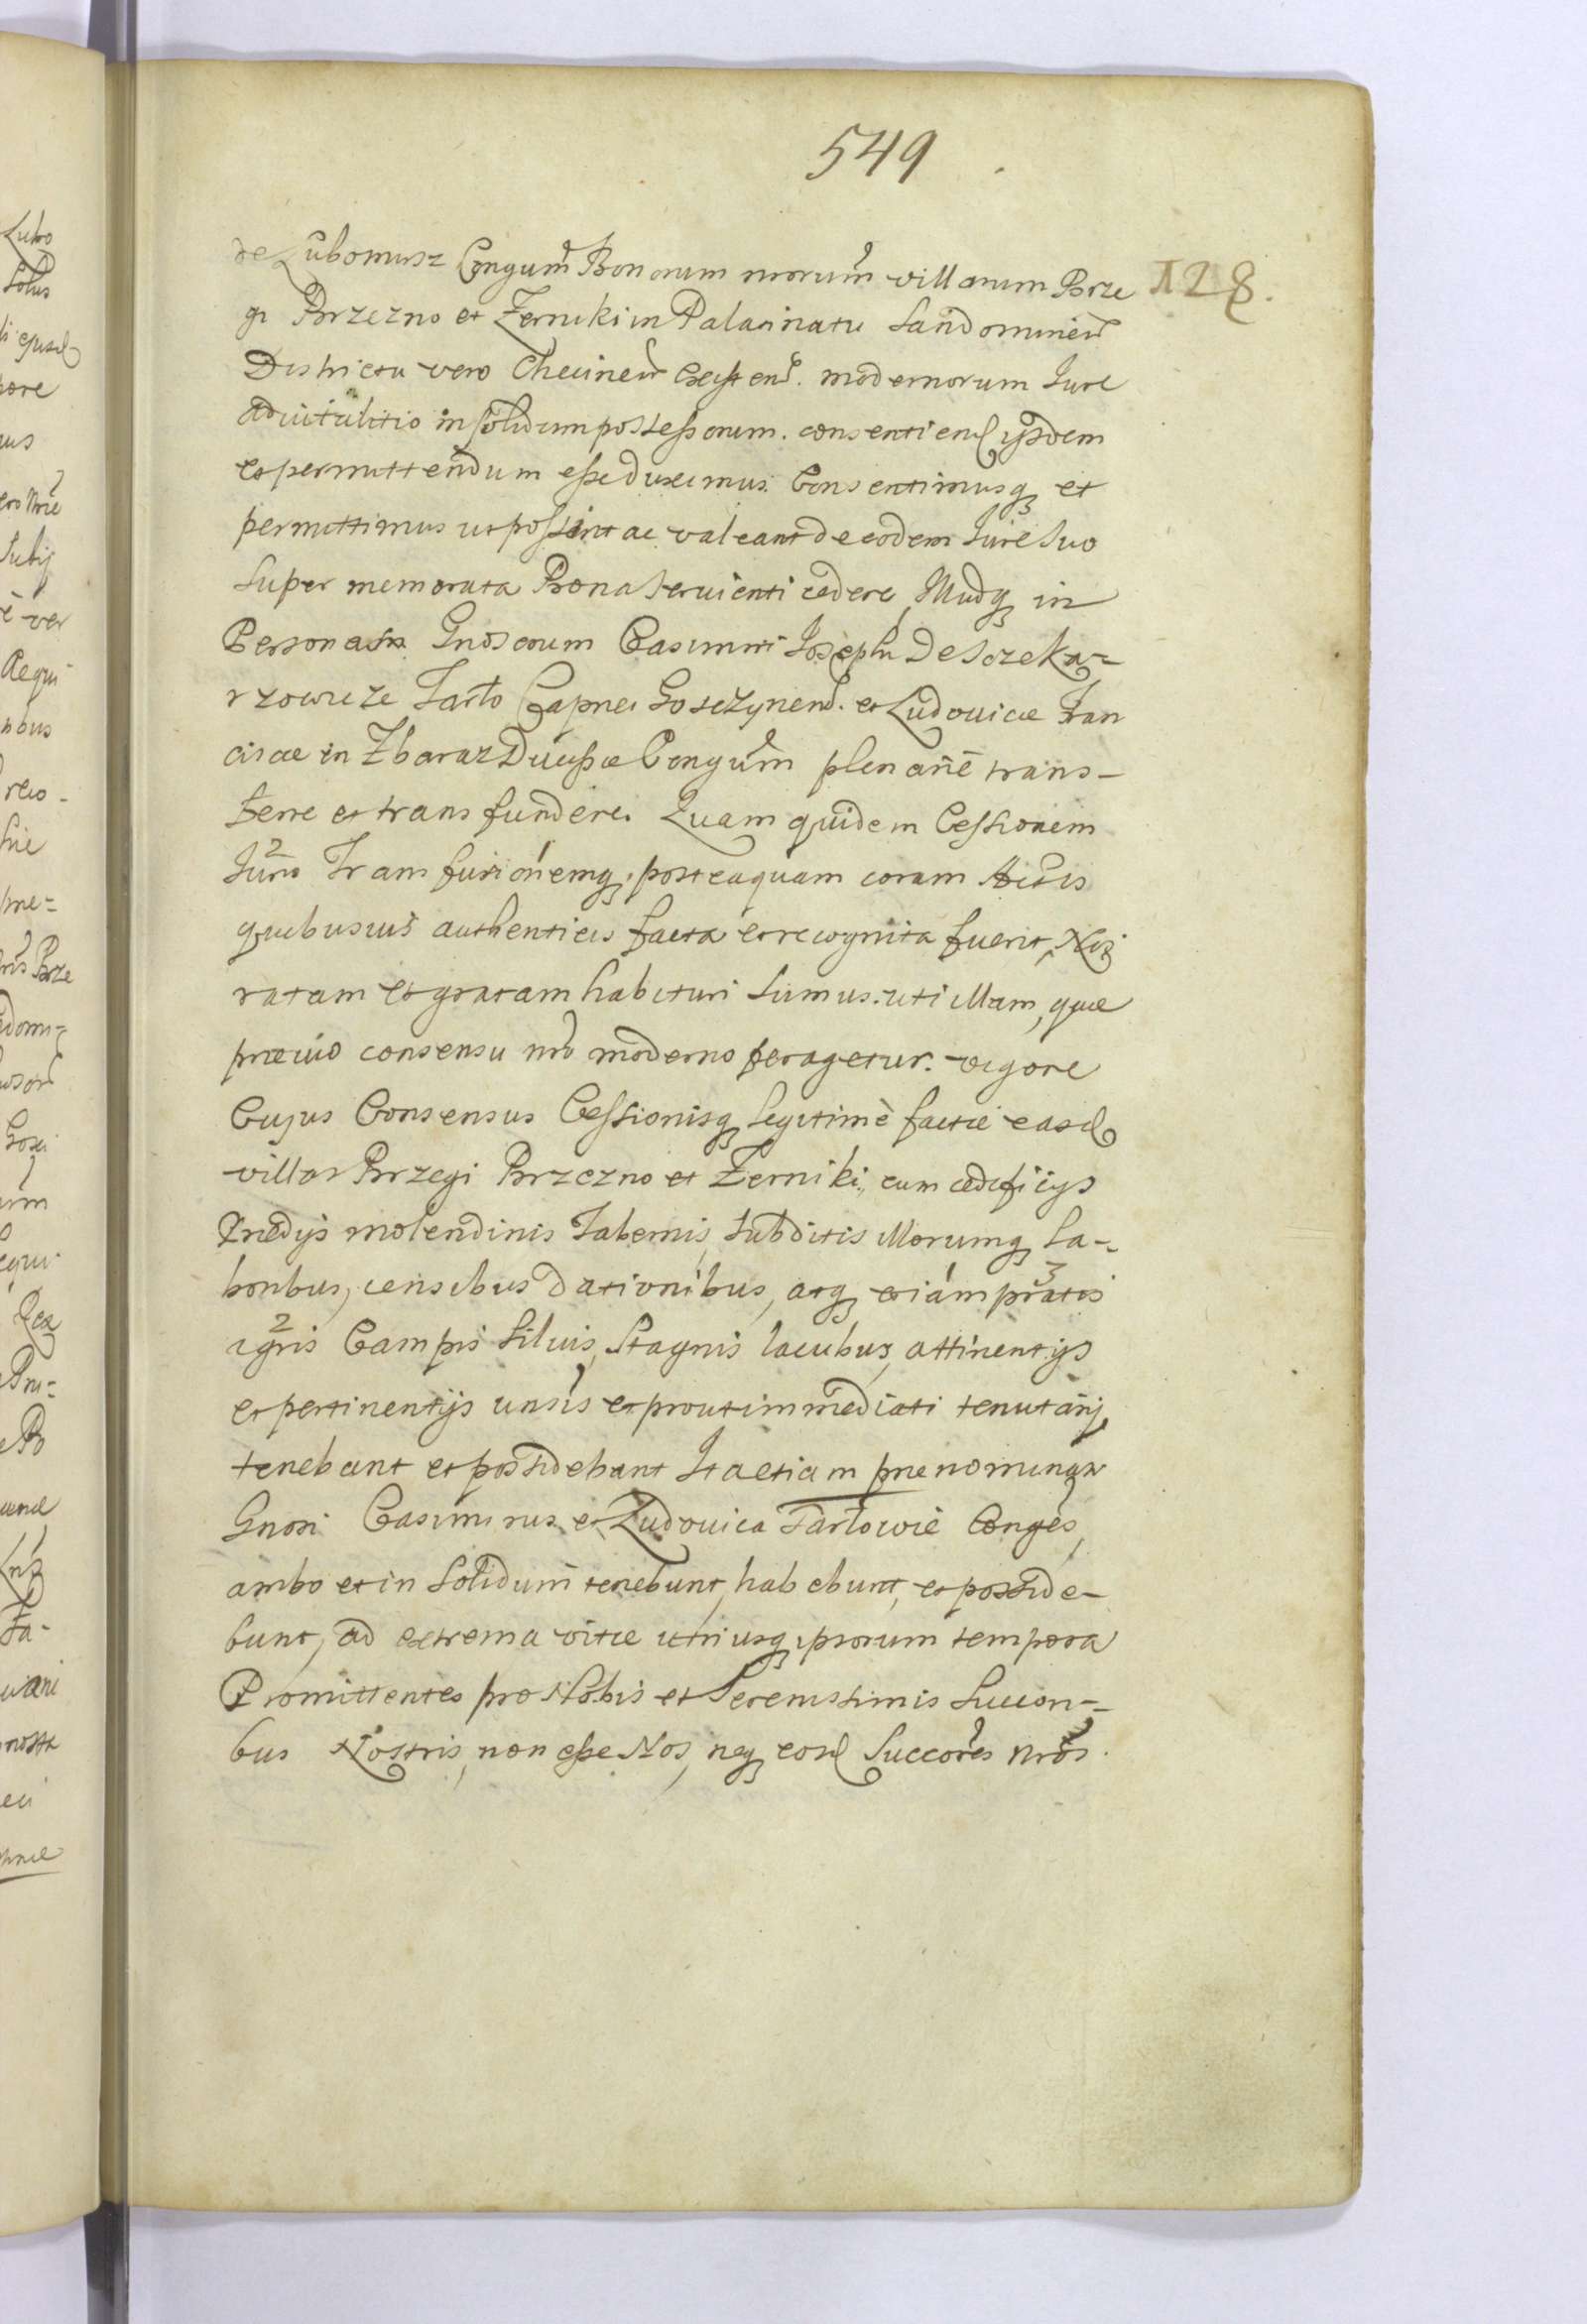 549
128.
de Lubomirz Congum Bonorum nrorum villarum Brze
gi Brzezno et Zerniki in Palatinatu Sandomirien
Districtu vero Checinen existen. modernorum Jure
advitalitio in solidum possessorum. consentiend ijsdem
et permittendum esse duximus. Consentimusq et
permittimus ut possint ac valeant de eodem Jure suo
super memorata Bona servienti cedere, Illudq in
Personas Gnosorum Casimiri Josephi de Sczeka-
rzowice Tarło Capnei Gosczynen. et Ludovicæ Fran
ciscae in Zbaraz Ducissæ Congum plenarie trans-
ferre et transfundere. Quam quidem Cessionem
Juris Transfusionemq. posteaquam coram Actis
quibusvis authenticis facta et recognita fuerit, Nos
ratam et gratam habituri sumus. uti illam, quæ
prævio consensu nro moderno peragetur. vigore
Cujus Consensus Cessionisq legitimè factæ easd
villas Brzegi Brzezno et Zerniki, cum ædificijs
Prædijs molendinis Tabernis, subditis illorumq La-
boribus, censibus dationibus, atq etiam pratis
agris Campis silvis, stagnis lacubus, attinentijs
et pertinentijs unsis et prout immediati tenutarij,
tenebant et possidebant Ita etiam prænominati
Gnosi Casimirus et Ludovica Tarłowie Conges,
ambo et in solidum tenebunt, habebunt, et posside-
bunt, ad extrema vitæ utriusq ipsorum tempora
Promittentes pro Nobis et Serenissimis Succori-
bus Nostris, non esse Nos, neq eosd Succores nros.